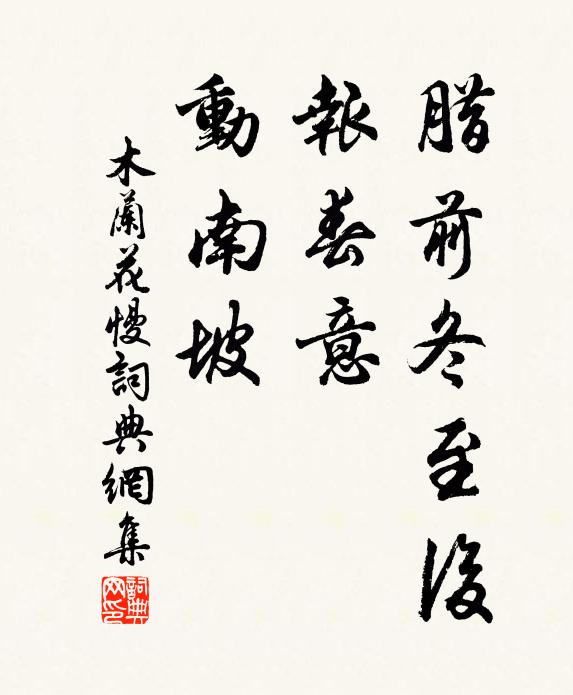 腊前冬至後
報春意
動南坡
木蘭花慢詞典網集
詞典
网印